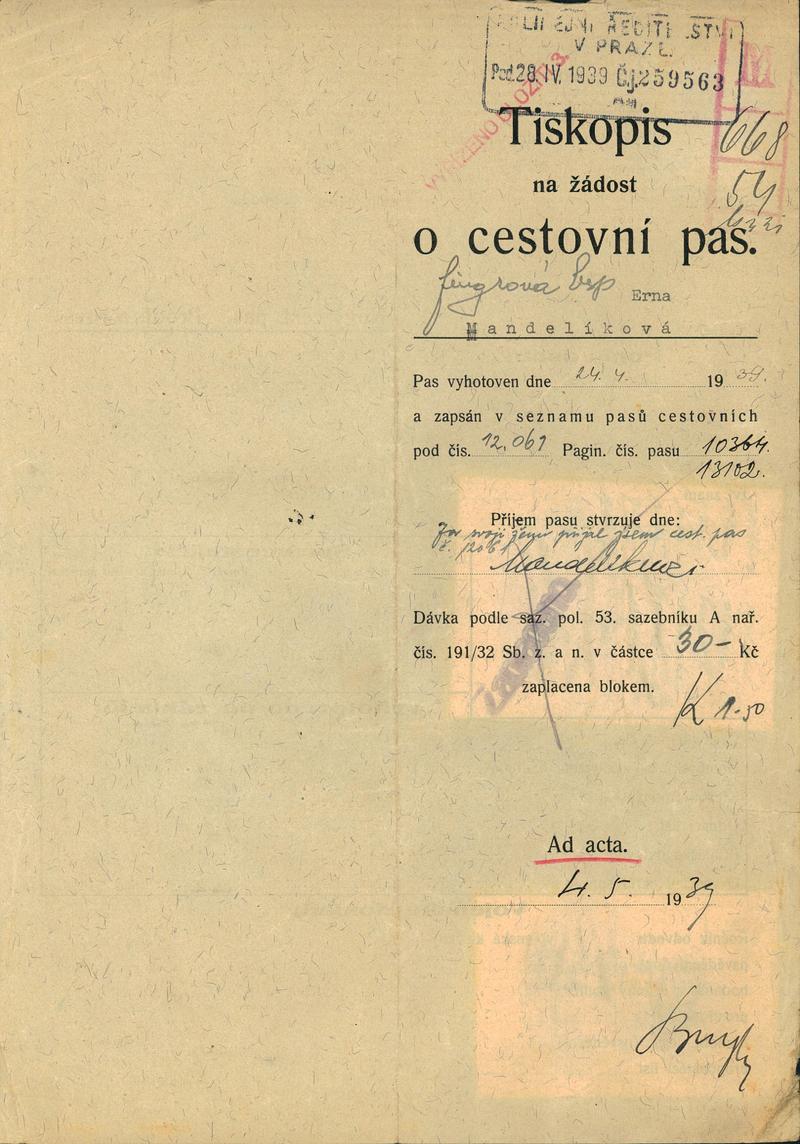 V PRAZE
28. IV. 1939 Čj. 259563
668
54
Tiskopis
na žádost
o cestovní pas.
Erna
Mandelíková
Pas vyhotoven dne 24. 4. 1939.
a zapsán v seznamu pasů cestovních
pod čís. 12,061 Pagin. čís. pasu 10364.
13102.
Příjem pasu stvrzuje dne:
Za svoji ženu přijal jsem cest. pas
Dávka podle saz. pol. 53. sazebníku A nař.
čís. 191/32 Sb. z. a n. v částce 30- Kč
zaplacena blokem.
K 1.50
Ad acta.
4. 5. 1939